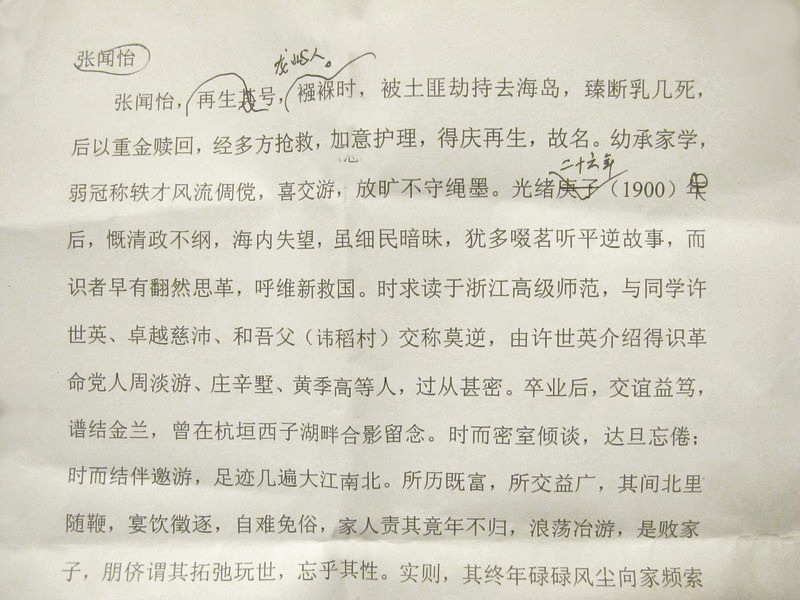 张闻怡
龙屿人。
张闻怡，再生其号，襁褓时，被土匪劫持去海岛，臻断乳几死，
后以重金赎回，经多方抢救，加意护理，得庆再生，故名。幼承家学，
二十六年
弱冠称轶才风流倜傥，喜交游，放旷不守绳墨。光绪庚子（1900）年
后，慨清政不纲，海内失望，虽细民暗昧，犹多啜茗听平逆故事，而
识者早有翻然思革，呼维新救国。时求读于浙江高级师范，与同学许
世英、卓越慈沛、和吾父（讳稻村）交称莫逆，由许世英介绍得识革
命党人周淡游、庄辛墅、黄季高等人，过从甚密。卒业后，交谊益笃，
谱结金兰，曾在杭垣西子湖畔合影留念。时而密室倾谈，达旦忘倦；
时而结伴邀游，足迹几遍大江南北。所历既富，所交益广，其间北里
随鞭，宴饮徵逐，自难免俗，家人责其竟年不归，浪荡冶游，是败家
子，朋侪谓其拓弛玩世，忘乎其性。实则，其终年碌碌风尘向家频索